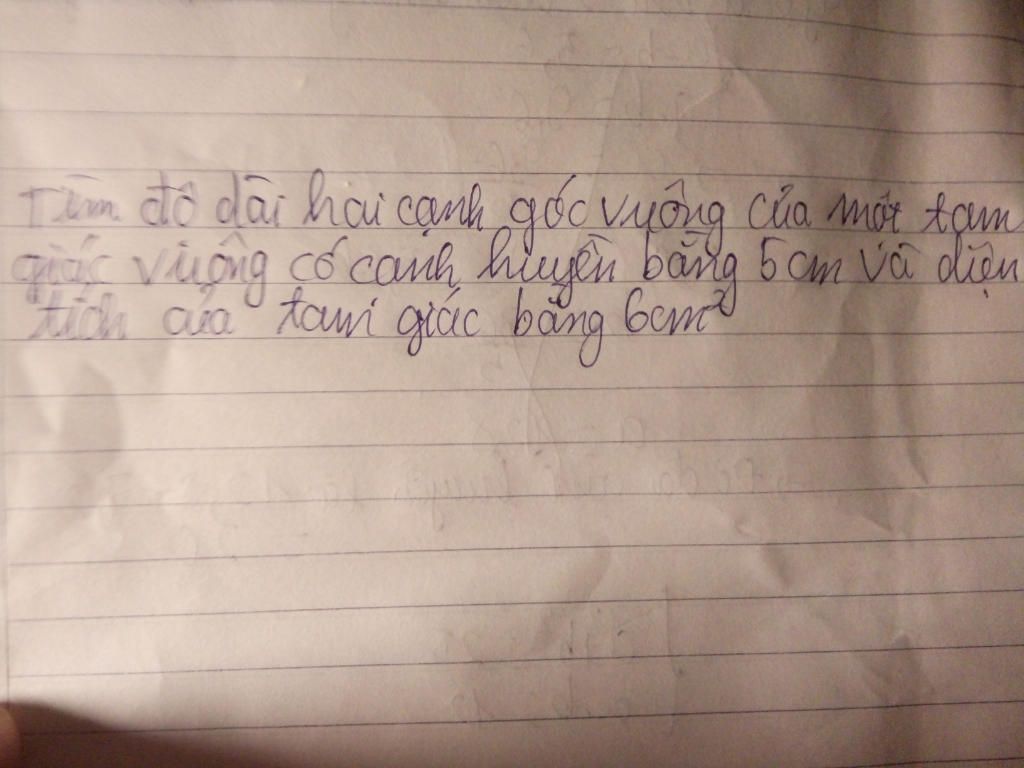 Tìm độ dài hai cạnh góc vuông của một tam
giác vuông có cạnh huyền bằng 5cm và diện
tích của tam giác bằng 6cm²